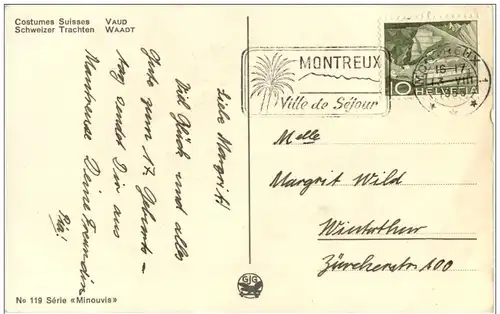 Costumes Suisses VAUD
Schweizer Trachten WAADT
Liebe Margrit!
Viel Glück und alles
Gute zum 17. Geburts-
tag sendet Dir aus
Montreux Deine Freundin
No 119 Série «Minouvis»
MONTREUX
Ville de Séjour
10 HELVETIA
MONTREUX 1
GJG
Melle
Margrit Wild
Winterthur
Zürcherstr. 100